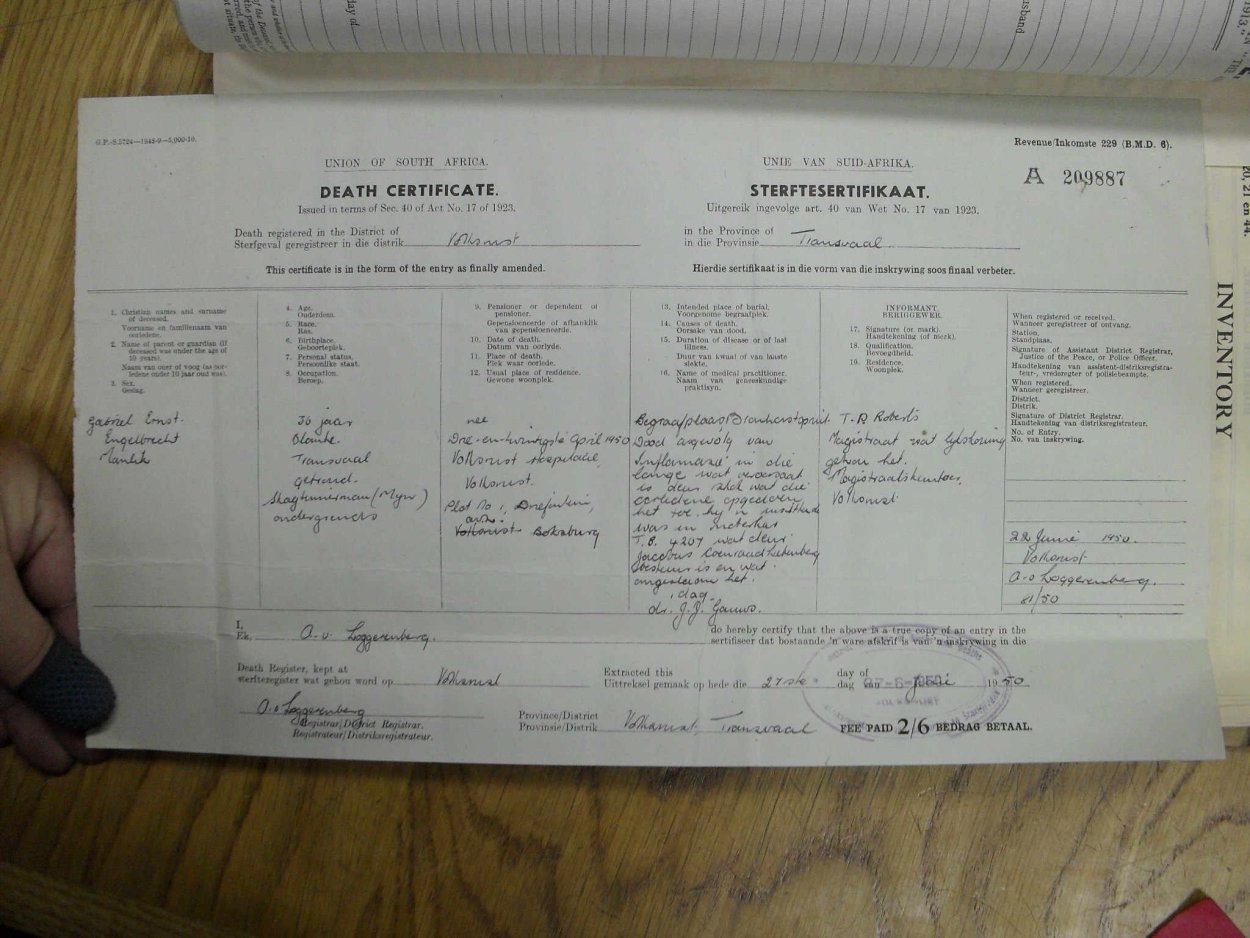 G.P.-S.5724—1948-9—5,000-10.
Revenue/Inkomste 229 (B.M.D. 6).
UNION OF SOUTH AFRICA.
UNIE VAN SUID-AFRIKA.
A 209887
DEATH CERTIFICATE.
STERFTESERTIFIKAAT.
Issued in terms of Sec. 40 of Act No. 17 of 1923.
Uitgereik ingevolge art. 40 van Wet No. 17 van 1923.
Death registered in the District of
Sterfgeval geregistreer in die distrik Volksrust
in the Province of
in die Provinsie Transvaal
This certificate is in the form of the entry as finally amended.
Hierdie sertifikaat is in die vorm van die inskrywing soos finaal verbeter.
1. Christian names and surname
of deceased.
Voorname en familienaam van
oorledene.
2. Name of parent or guardian (if
deceased was under the age of
10 years).
Naam van ouer of voog (as oor-
ledene onder 10 jaar oud was).
3. Sex.
Geslag.
4. Age.
Ouderdom.
5. Race.
Ras.
6. Birthplace.
Geboorteplek.
7. Personal status.
Persoonlike staat.
8. Occupation.
Beroep.
9. Pensioner or dependent of
pensioner.
Gepensioeneerde of afhanklik
van gepensioeneerde.
10. Date of death.
Datum van oorlyde.
11. Place of death.
Plek waar oorlede.
12. Usual place of residence.
Gewone woonplek.
13. Intended place of burial.
Voorgenome begraafplek.
14. Causes of death.
Oorsake van dood.
15. Duration of disease or of last
illness.
Duur van kwaal of van laaste
siekte.
16. Name of medical practitioner.
Naam van geneeskundige
praktisyn.
INFORMANT.
BERIGGEWER.
17. Signature (or mark).
Handtekening (of merk).
18. Qualification.
Bevoegdheid.
19. Residence.
Woonplek.
When registered or received.
Wanneer geregistreer of ontvang.
Station.
Standplaas.
Signature of Assistant District Registrar,
Justice of the Peace, or Police Officer.
Handtekening van assistent-distriksregistra-
teur-, vrederegter of polisiebeampte.
When registered.
Wanneer geregistreer.
District.
Distrik.
Signature of District Registrar.
Handtekening van distriksregistrateur.
No. of Entry.
No. van inskrywing.
Gabriel Ernst
Engelbrecht
Manlik
36 jaar
Blanke
Transvaal
getroud
Skagtimmerman (Myn)
ondergronds
nee
Drie-en-twintigste April 1950
Volksrust Hospitaal,
Volksrust.
Plot No 1, Driefontein,
Volksrust Boksburg
Begraafplaas
Dood as gevolg van
in die
wat veroorsaak
is deur wat die
oorledene opgedoen
het toe hy 'n
was in motorkar
T.B. 4207 wat deur
Jacobus Coenraad
bestuur is en wat
omgeslaan het.
dag
dr. J.J. Gouws.
T. R Roberts
Magistraat wat lykskouing
gehou het.
Magistraatskantoor,
Volksrust
22 Junie 1950.
Volksrust
A. v Loggerenberg.
81/50
I,
Ek, A. v. Loggerenberg.
do hereby certify that the above is a true copy of an entry in the
sertifiseer dat bostaande 'n ware afskrif is van 'n inskrywing in die
Death Register, kept at
sterfteregister wat gehou word op Volksrust
Extracted this
Uittreksel gemaak op hede die 27ste
day of
dag van Junie 1950
27-6-1950
A. v Loggerenberg
Registrar/District Registrar.
Registrateur/Distriksregistrateur.
Province/District
Provinsie/Distrik Volksrust, Transvaal
FEE PAID 2/6 BEDRAG BETAAL.
INVENTORY
20, 21 en 44.
day of
husband